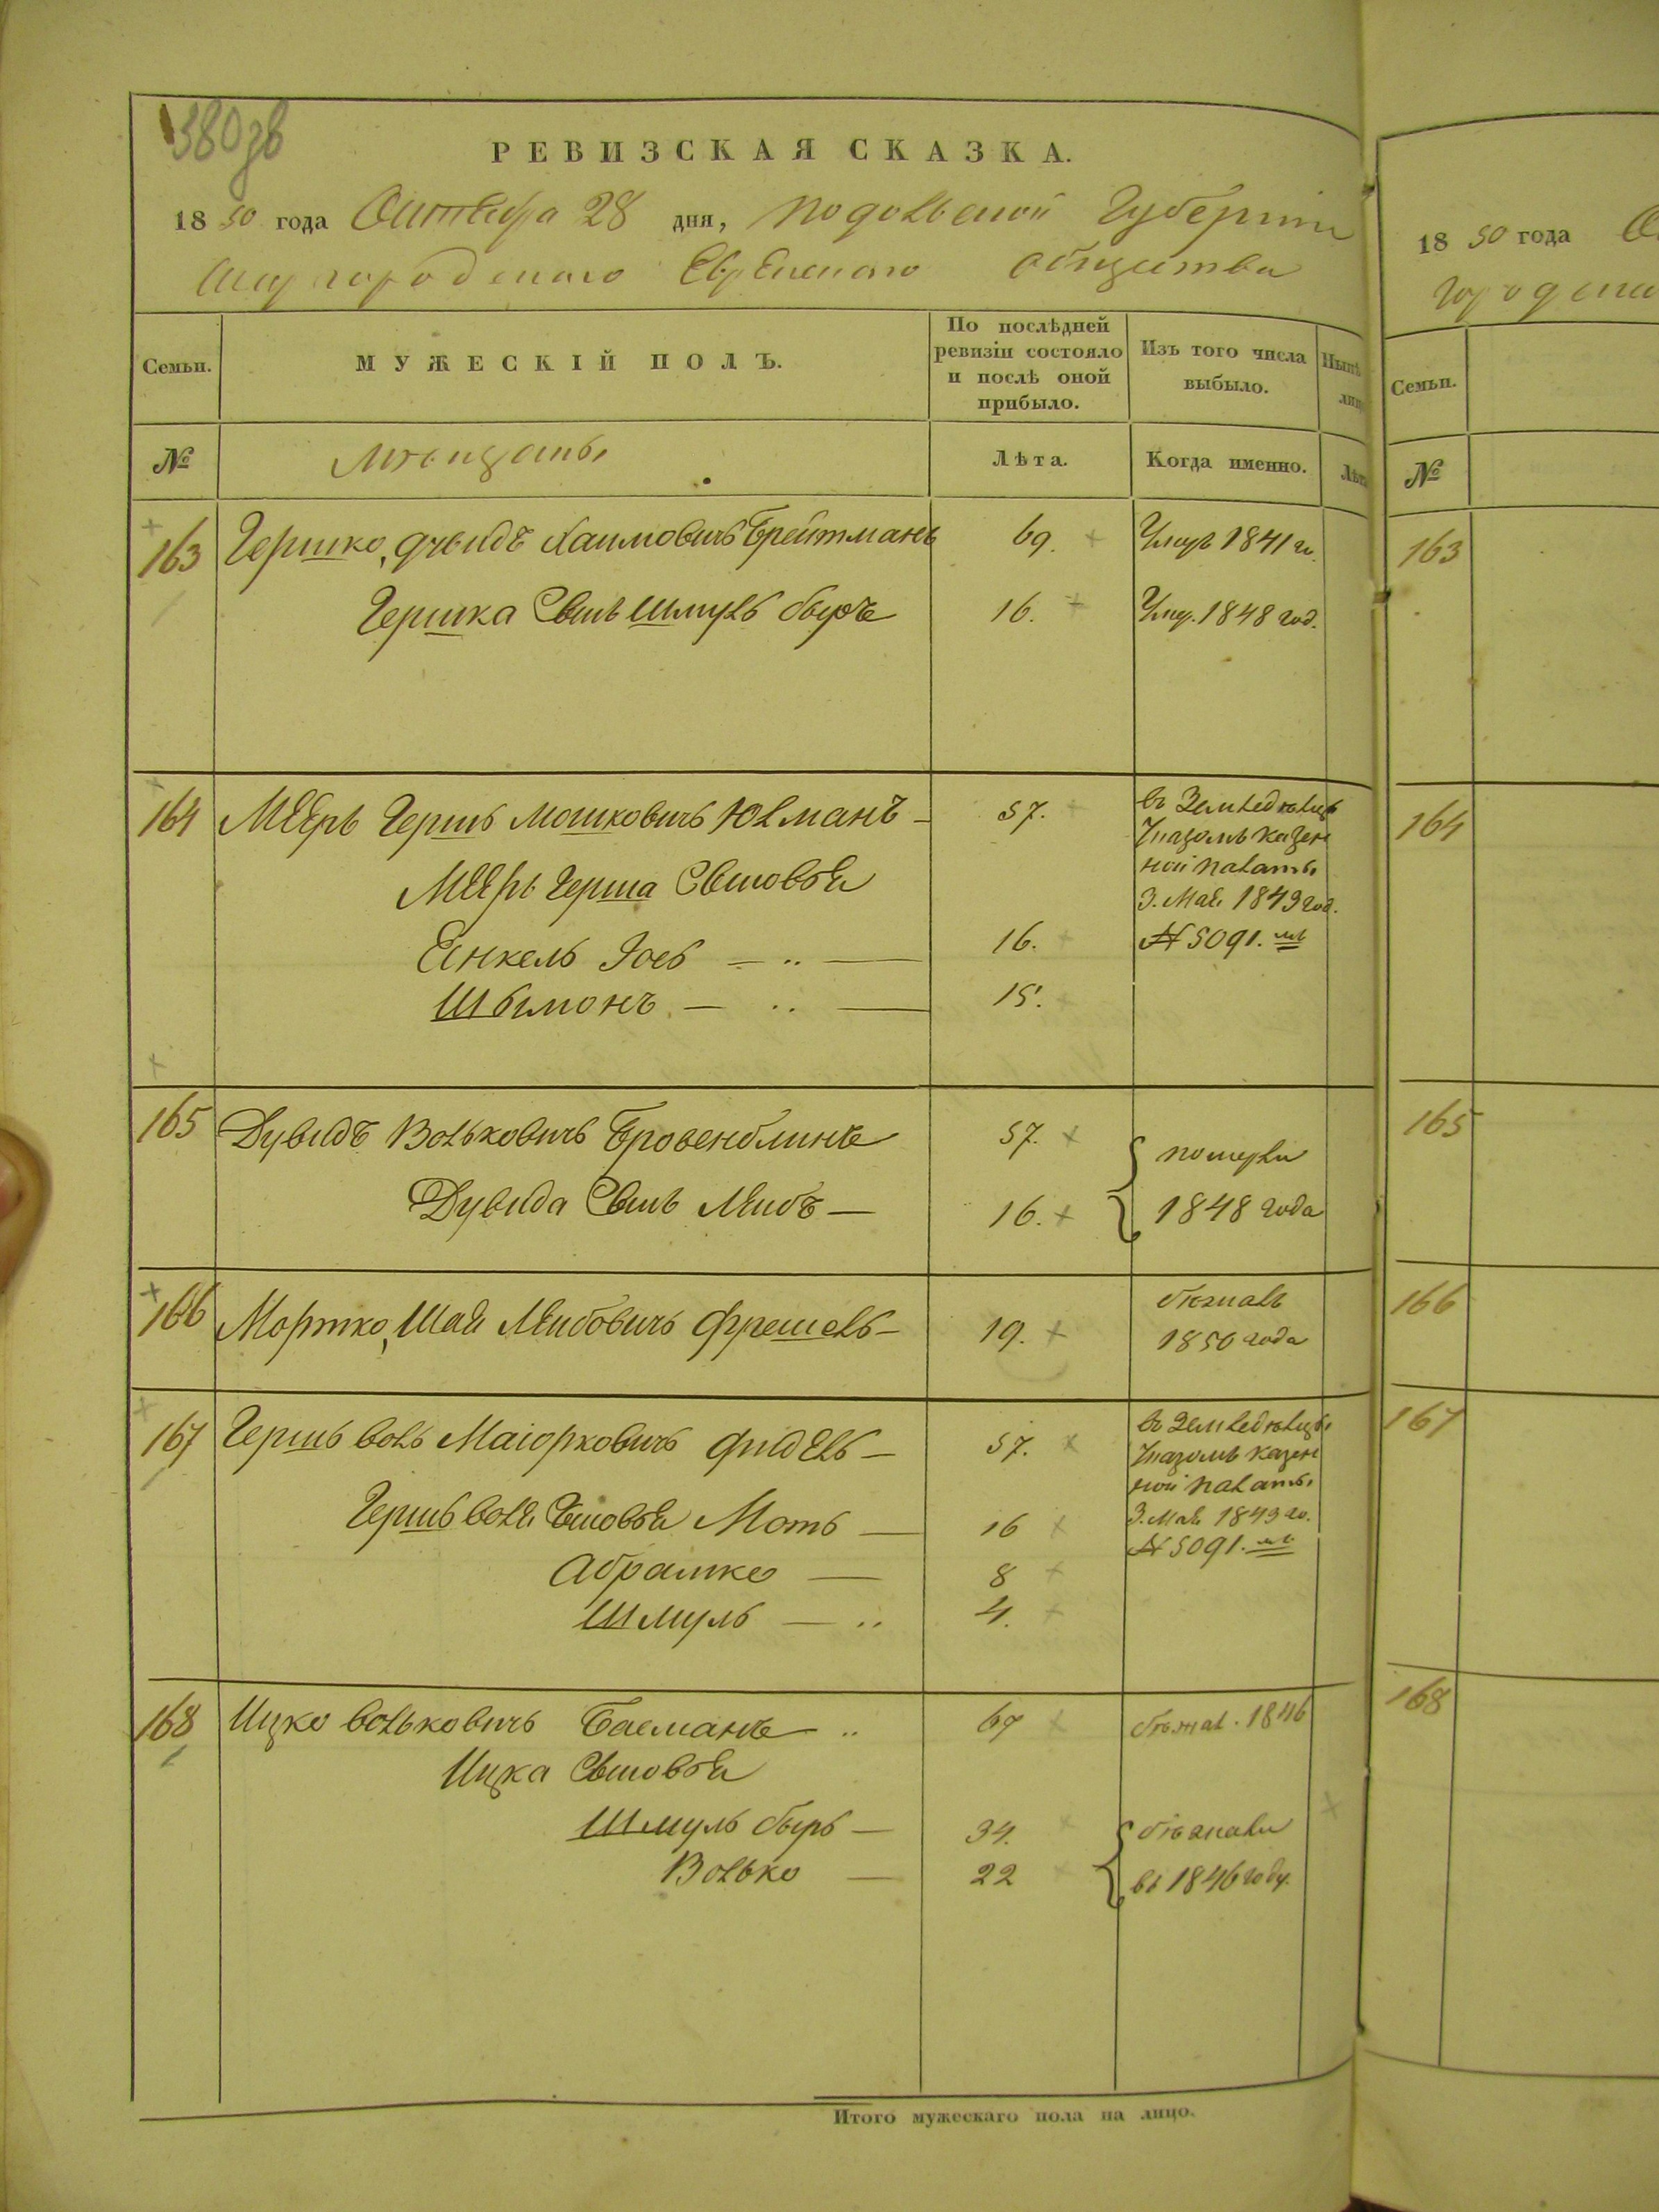 380 зв
РЕВИЗСКАЯ СКАЗКА.
1850 года Октября 28 дня, Подольской Губернiи
Шаргородского Еврейского общества
Семьи. МУЖЕСКІЙ ПОЛЪ. По послѣдней ревизіи состояло и послѣ оной прибыло. Изъ того числа выбыло. Нынѣ
№ Мѣщаны Лѣта. Когда именно. Лѣта
163 Гершко, Дувидъ Хаимовичъ Брейтманъ 69. Умеръ 1841 го.
Гершка Сынъ Шмуль 16. Умер. 1848 год.
164 Мееръ Гершъ Мошковичъ Юлманъ 57. въ Земледѣльцы
Указомъ Казен
ной Палаты
Мееръ Герша Сыновья
3. Мая 1849 год.
Янкель Iось — .. — 16. № 5091. мъ
Шымонъ — .. — 15.
165 Дувидъ Волковичъ 57. померли
Дувида Сынъ Лейбъ — 16. 1848 года
166 Мортко, Шая Лейбовичъ Фрешель — 19. бѣжалъ
1850 года
167 Гершъ Воль Маiорковичъ Фидель — 57. въ Земледѣльцы
Указомъ Казен
ной Палаты
Гершъ Воля Сыновья Моть — 16 3. Мая 1849 го.
Абрамко — 8 № 5091. мъ
Шмуль — .. 4.
168 Ицко Вольковичъ Басманъ .. 67 бѣжал. 1846
Ицка Сыновья
Шмуль Бырь — 34. бѣжали
Волько — 22 въ 1846 году.
Итого мужескаго пола на лицо.
1850 года
Семьи.
№
163
164
165
166
167
168